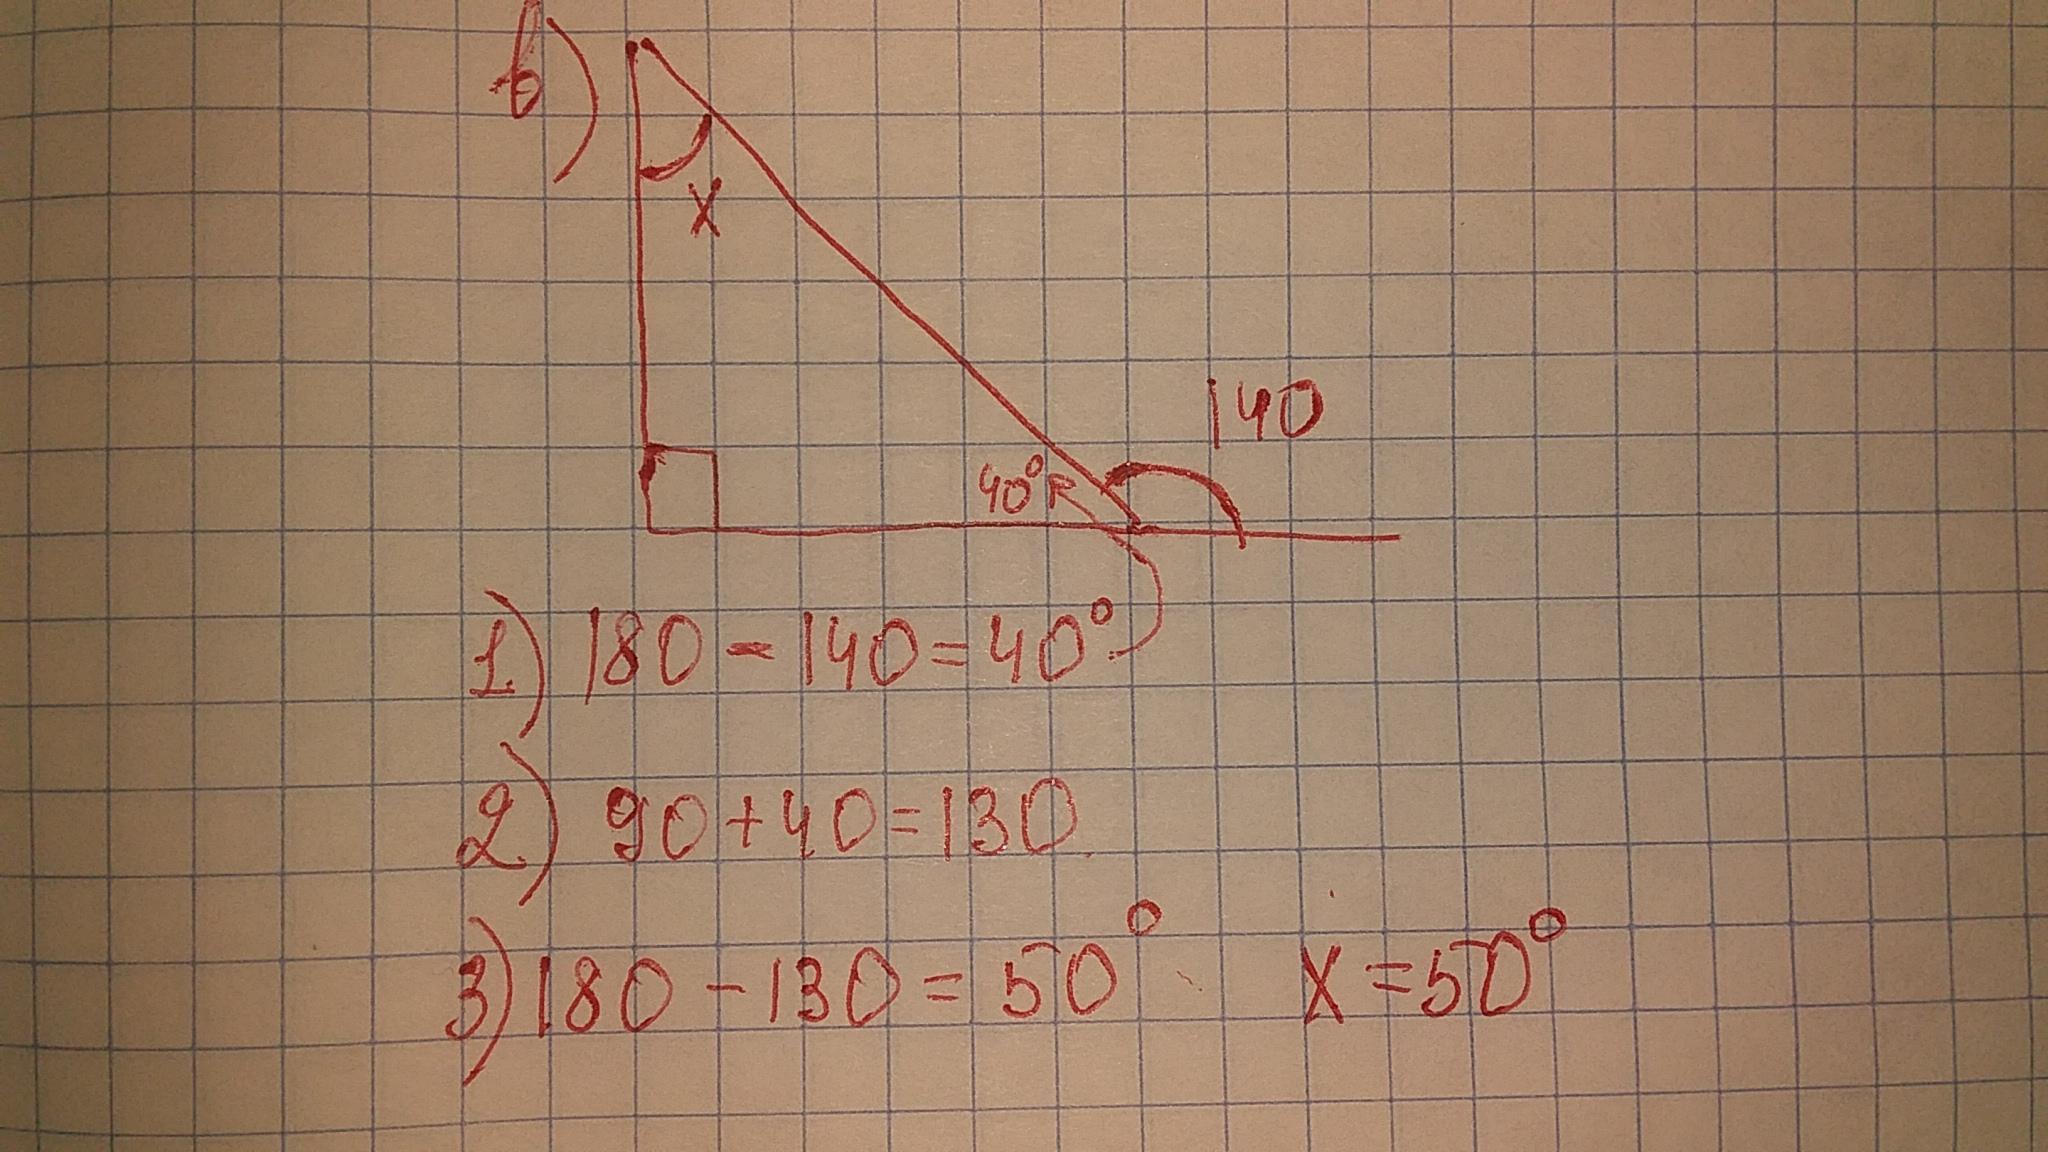 в)
X
140
40°
1) 180 - 140 = 40°
2) 90 + 40 = 130
3) 180 - 130 = 50° X = 50°